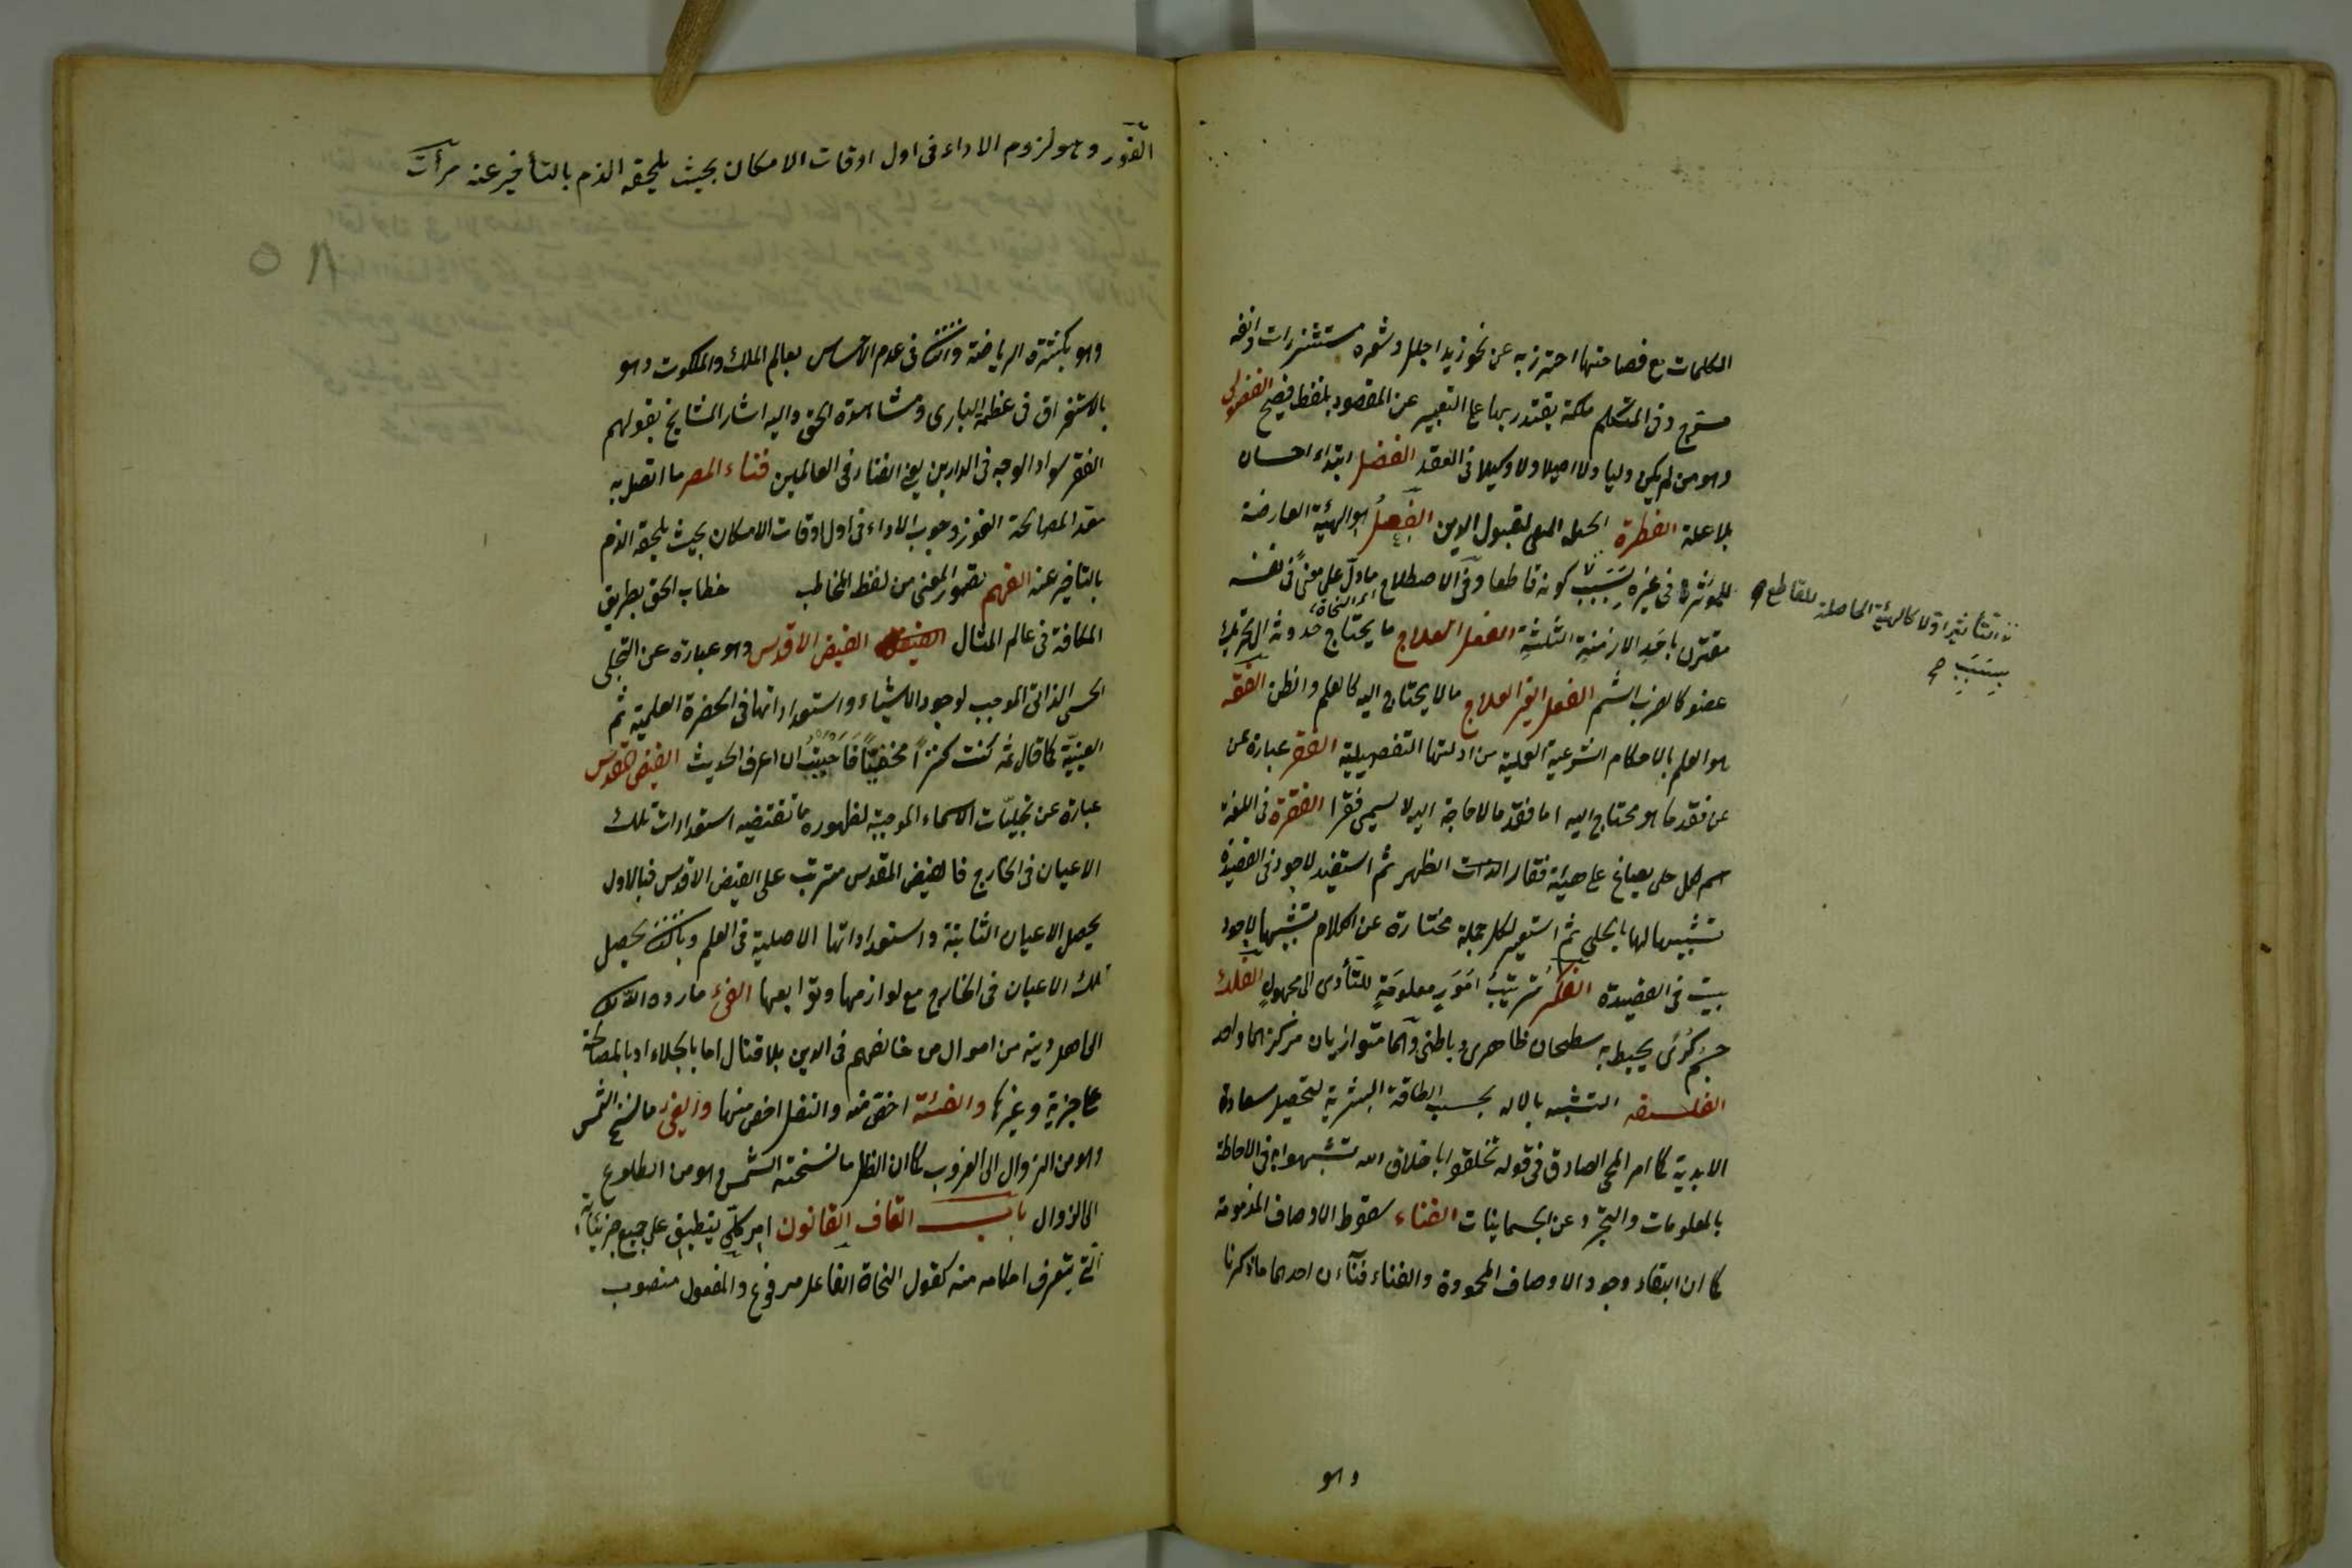 الكلمات مع فصاحتها احترز به عن نحو زيد اجلل وشعره مستشزرات وانفه
مسرج وفى المتكلم ملكة يقتدر بها على التعبير عن المقصود بلفظ فصيح الفضولى
وهو من لم يكن وليا ولا اصيلا ولا وكيلا فى العقد الفضل ابتداء احسان
بلا علة الفطرة الجبلة المتهيئة لقبول الدين الفعل هو الهيئة العارضة
للمؤثر فى غيره بسبب كونه قاطعا وفى الاصطلاح ما دل على معنى فى نفسه
مقترن باحد الازمنة الثلثة الفعل العلاج ما يحتاج حدوثه الى تحريك
عضو كالضرب والشتم الفعل الغير العلاج ما لا يحتاج اليه كالعلم والظن الفقه
هو العلم بالاحكام الشرعية العملية من ادلتها التفصيلية الفقر عبارة عن
عن فقد ما هو محتاج اليه اما فقد ما لا حاجة اليه لا يسمى فقرا الفقرة فى اللغة
اسم لكل حلى يصاغ على هيئة فقار الظهر ثم استعير لاجود فى القصيدة
تشبيها لها بالحلى ثم استعير لكل جملة مختارة عن الكلام تشبيها لاجود
بيت فى القصيدة الفكر ترتيب امور معلومة للتأدى الى مجهول الفلك
جسم كرى يحيط به سطحان ظاهرى وباطنى وهما متوازيان مركزهما واحد
الفلسفه التشبه بالاله بحسب الطاقة البشرية لتحصيل سعادة
الابدية كما امر المخبر الصادق فى قوله تخلقوا باخلاق الله تشبهوا به فى الاحاطة
بالمعلومات والتجرد عن الجسمانيات الفناء سقوط الاوصاف المذمومة
كما ان البقاء وجود الاوصاف المحمودة والفناء فناءان احدهما ما ذكرنا
وهو
التأثير اولا كالهيئة الحاصلة للقاطع
بسبب
الفور وهو لزوم الاداء فى اول اوقات الامكان بحيث يلحقه الذم بالتأخير عنه مرآت
٥٨
وهو بكثرة الرياضة والثانى عدم الاحساس بعالم الملك والملكوت وهو
بالاستغراق فى عظمة البارى ومشاهدة الحق واليه اشار المشايخ بقولهم
الفقر سواد الوجه فى الدارين يعنى الفناء فى العالمين فناء المصر ما اتصل به
معدا لمصالحه الفور وجوب الاداء فى اول اوقات الامكان بحيث يلحقه الذم
بالتأخير عنه الفهم تصور المعنى من لفظ المخاطب خطاب الحق بطريق
المكافة فى عالم المثال الفيض الاقدس وهو عبارة عن التجلى
الحسى الذاتى الموجب لوجود الاشياء واستعداداتها فى الحضرة العلمية ثم
العينية كما قال كنت كنزا مخفيا فاحببت ان اعرف الحديث الفيض المقدس
عبارة عن تجليات الاسماء الموجبة لظهور ما تقتضيه استعدادات تلك
الاعيان فى الخارج فالفيض المقدس مترتب على الفيض الاقدس فبالاول
يحصل الاعيان الثابتة واستعداداتها الاصلية فى العلم وبالثانى يحصل
تلك الاعيان فى الخارج مع لوازمها وتوابعها الفئ ما رده الله
الى اهل دينه من اموال من خالفهم فى الدين بلا قتال اما بالجلاء او بالمصالحة
على جزية وغيرها والغنيمة اخص منه والنفل اخص منها والفئ ما نسخ الشمس
وهو من الزوال الى الغروب كما ان الظل ما نسخته الشمس وهو من الطلوع
الى الزوال باب القاف القانون امر كلى ينطبق على جميع جزئياته
التى يتعرف احكامه منه كقول النحاة الفاعل مرفوع والمفعول منصوب